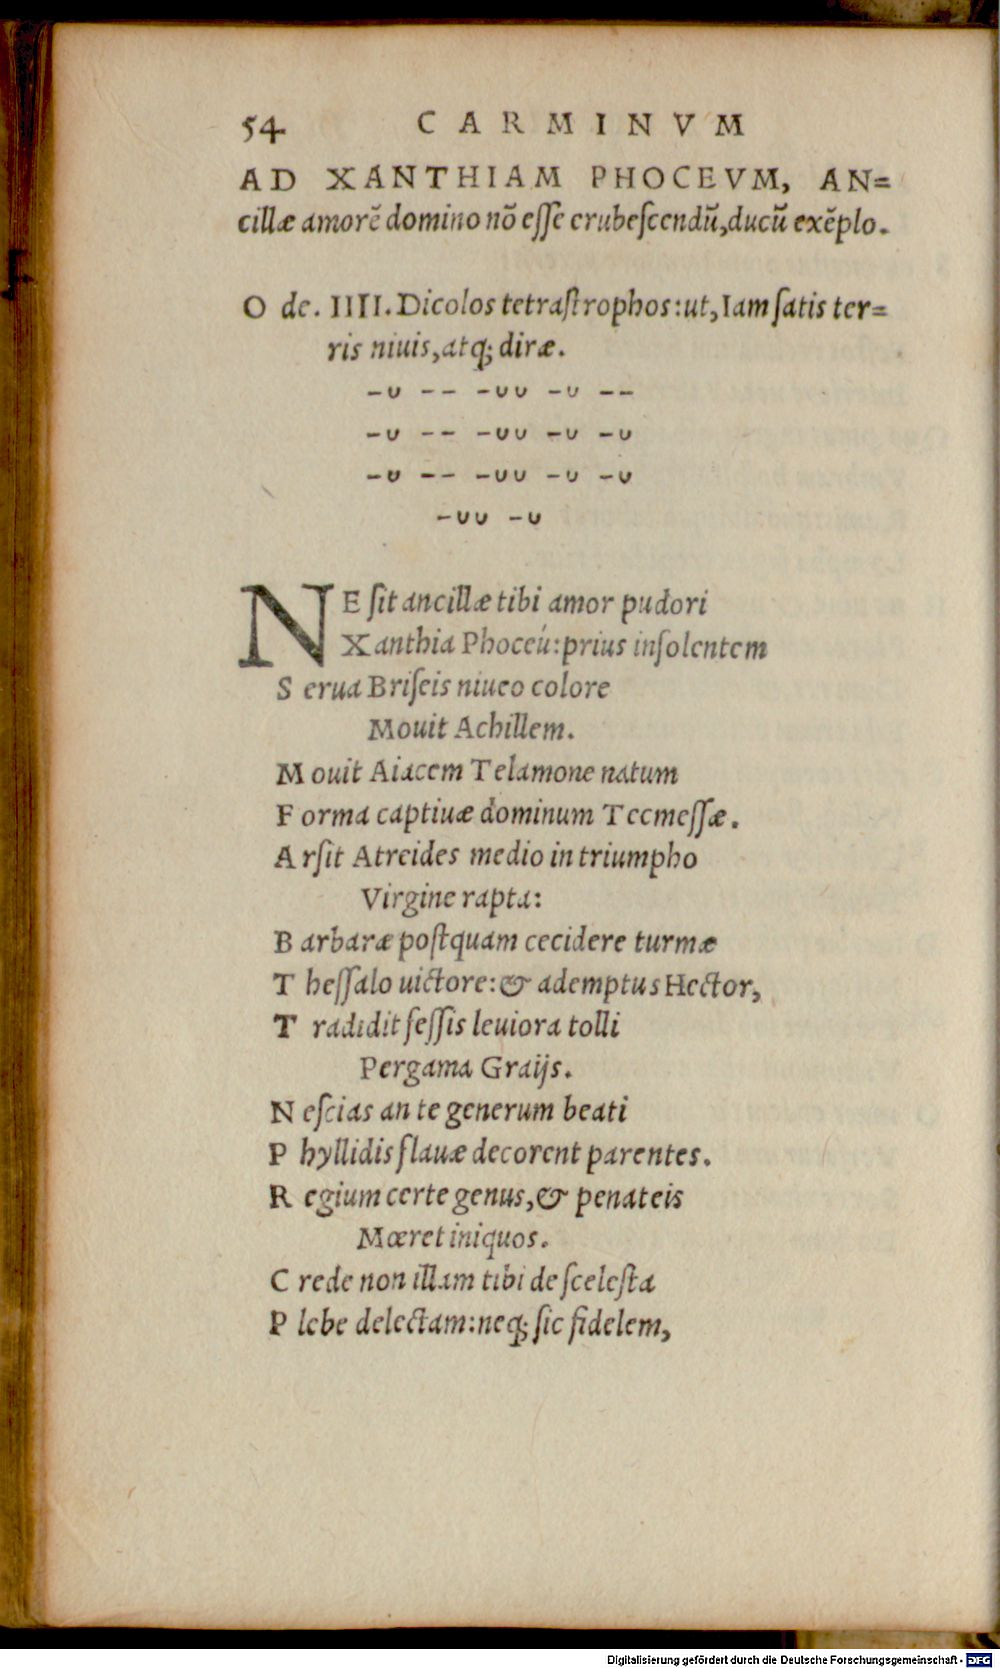 54 CARMINVM
AD XANTHIAM PHOCEVM, AN=
cillæ amorẽ domino nõ eſſe erubeſcendũ,ducũ exẽplo.
O de. IIII. Dicolos tetraſtrophos:ut, Iam ſatis ter=
ris niuis,atq; diræ.
–∪ –– –∪∪ –∪ ––
–∪ –– –∪∪ –∪ –∪
–∪ –– –∪∪ –∪ –∪
–∪∪ –∪
NE ſit ancillæ tibi amor pudori
Xanthia Phoceú:prius inſolentem
S erua Briſeis niueo colore
Mouit Achillem.
M ouit Aiacem Telamone natum
F orma captiuæ dominum Tecmeſſæ.
A rſit Atreides medio in triumpho
Virgine rapta:
B arbaræ poſtquam cecidere turmæ
T heſſalo uictore:& ademptus Hector,
T radidit feſſis leuiora tolli
Pergama Graijs.
N eſcias an te generum beati
P hyllidis flauæ decorent parentes.
R egium certe genus,& penateis
Mœret iniquos.
C rede non illam tibi de ſceleſta
P lebe delectam:neq; ſic fidelem,
Digitalisierung gefördert durch die Deutsche Forschungsgemeinschaft - DFG